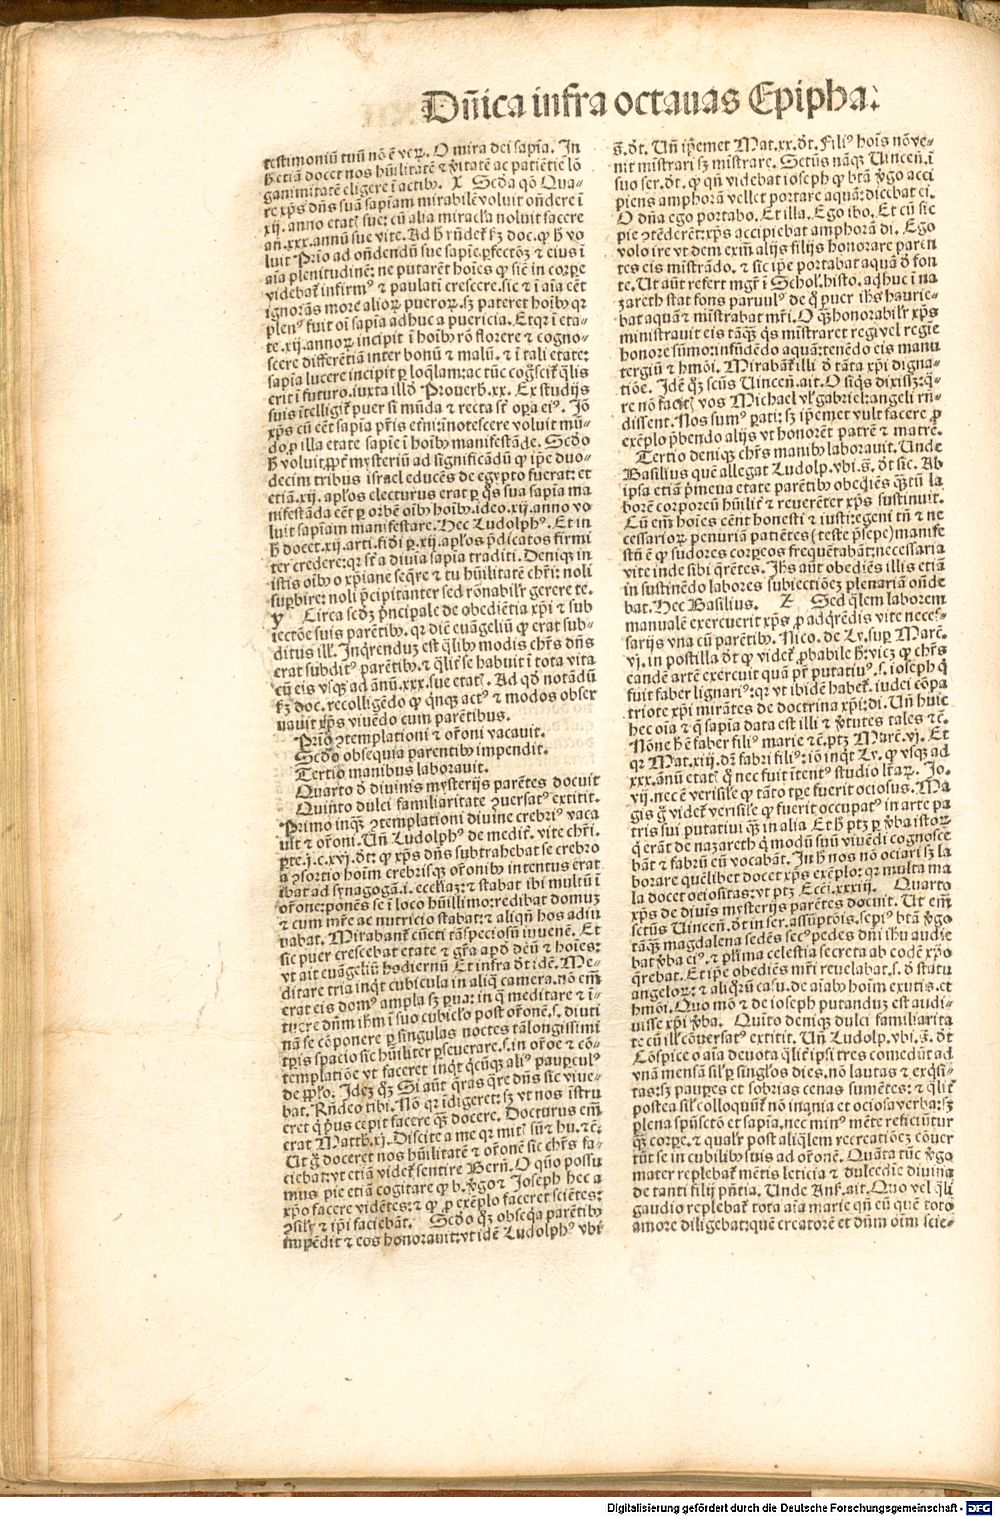 Dn̄ica infra octauas Epipha.
testimoniū tuū nō ē veꝝ. O mira dei sapīa. In
h̄ etiā docet nos hūilitatē ⁊ ꝟitatē ac patiētie lō
ganimitatē eligere ī actibꝫ. X Seda qō Qua-
re xp̄s dn̄s suā sapiam mirabilē voluit oñdere ī
xij. anno etatꝭ sue: cū alia miracl̄a noluit facere
añ .xxx. annū sue vite. Ad h̄ rn̄det̄ ẜꝫ doc. ꝙ h̄ vo
luit Prīo ad oñdendū sue sapīe ꝑfectōꝫ ⁊ eius ī
aīa plenitudinē: ne putarēt hoīes ꝙ sic̄ in corꝑe
videbat̄ infirmꝰ ⁊ paulati crescere. sic ⁊ ī aīa eēt
ignorās more alioꝝ pueroꝝ. sꝫ pateret hoībꝫ qꝛ
plenꝰ fuit oī sapīa adhuc a puericia. Et qꝛ ī eta-
te .xij. annoꝝ incipit ī hoībꝫ rō florere ⁊ cogno-
scere differētiā inter bonū ⁊ malū. ⁊ ī tali etate:
sapīa lucere incipit ꝑ loq̄lam: ac tūc cog̃scit̄ q̄lis
erit ī futuro. iuxta illd̄ Prouerb̄. xx. Ex studijs
suis ītelligit̄ puer si mūda ⁊ recta sīt oꝑa eiꝰ. Iō
xp̄s cū eēt sapīa pr̄is et̄ni: inotescere voluit mū-
do ꝑ illa etate sapīe ī hoībꝫ manifestāde. Scd̄o
h̄ voluit ꝓpt̄ mysteriū ad significādū ꝙ ip̄e duo-
decim tribus israel educēs de egypto fuerat: et
etiā .xij. apl̄os electurus erat ꝑ q̄s sua sapīa ma
nifestāda eēt ꝑ orbē oībꝫ hoībꝫ. ideo .xij. anno vo
luit sapīam manifestare. Hec Ludolphꝰ. Et in
h̄ docet .xij. arti. fidi ꝑ .xij. apl̄os p̄dicatos firmi
ter credere: qꝛ sīt a diuīa sapīa traditi. Deniqꝫ in
istis oībꝫ o xp̄iane seq̄re ⁊ tu hūilitatē chr̄i: noli
suꝑbire: noli p̄cipitanter sed rōnabil̄r gerere te.
Y Circa scd̄ꝫ p̄ncipale de obediētia xp̄i ⁊ sub
iectōe suis parētibꝫ. qꝛ dic̄ euāgeliū ꝙ erat sub-
ditus ill̄. Inq̄renduꝫ est q̄libꝫ modis chr̄s dn̄s
erat subditꝰ parētibꝫ. ⁊ q̄lit̄ se habuit ī tota vita
cū eis vsqꝫ ad ānū .xxx. sue etatꝭ. Ad qd̄ notādū
ẜꝫ doc. recolligēdo ꝙ q̄nqꝫ actꝰ ⁊ modos obser
uauit xp̄s viuēdo cum parētibus.
Prīo ꝯtemplationi ⁊ or̄oni vacauit.
Scd̄o obsequia parentibꝫ impendit.
Tertio manibus laborauit.
Quarto d̄ diuinis mysterijs parētes docuit
Quinto dulci familiaritate ꝯuersatꝰ extitit.
Primo inqꝫ ꝯtemplationi diuine crebriꝰ vaca
uit ⁊ or̄oni. Uñ Ludolphꝰ de medit̄. vite chr̄i.
ꝑte .j. c. xvj. d̄t: ꝙ xp̄s dn̄s subtrahebat se crebro
a ꝯsortio hoīm crebrisqꝫ or̄onibꝫ intentus erat
ibat ad synagogā .i. eccl̄iaꝫ: ⁊ stabat ibi multū ī
or̄one: ponēs se ī loco hūillimo: redibat domuꝫ
⁊ cum mr̄e ac nutricio stabat: ⁊ aliqñ hos adiu
uabat. Mirabant̄ cūcti tā speciosū iuuenē. Et
sic puer crescebat etate ⁊ gr̄a apd̄ deū ⁊ hoīes:
vt ait euāgeliū hodiernū Et infra d̄t idē. Me-
ditare tria inqt cubicula in aliq̄ camera. nō em̄
erat eis domꝰ ampla sꝫ ꝑua: in q̄ meditare ⁊ ī-
tuere dn̄m ih̄m ī suo cubicl̄o post or̄onē .s. diuti
nā se cōponere ꝑ singulas noctes tā longissimi
tp̄is spacio sic hūiliter ꝑseuerare .s. in or̄oe ⁊ cō-
templatiōe vt faceret inqt q̄cūqꝫ aliꝰ pauꝑculꝰ
de ꝓpl̄o. Ideꝫ qꝫ Si aūt q̄ras q̄re dn̄s sic viue-
bat. Rn̄deo tibi. Nō qꝛ idigeret: sꝫ vt nos īstru
eret q̄ pꝰus cepit facere qꝫ docere. Docturus em̄
erat Matth̄. xj. Discite a me qꝛ mitꝭ sū ⁊ hu. ⁊c̄.
Ut g̃ doceret nos hūilitatē ⁊ or̄onē sic chr̄s fa-
ciebat: vt etiā videt̄ sentire Berñ. O qūo possu
mus pie etiā cogitare ꝙ b. ꝟgo ⁊ Ioseph hec a
xp̄o facere vidētes: ⁊ ꝙ ꝓ exēplo faceret sciētes:
ꝯsil̄r ⁊ ip̄i faciebāt. Scd̄o qꝫ obseq̄a parētibꝫ
impēdit ⁊ eos honorauit: vt idē Ludolphꝰ vbi
s̄. d̄t. Uñ ip̄emet Mat. xx. d̄t. Filiꝰ hoīs nō ve-
nit mīstrari sꝫ mīstrare. Sctūs nāqꝫ Uinceñ. ī
suo ser. d̄t. ꝙ qñ videbat ioseph ꝙ btā ꝟgo acci
piens amphorā vellet portare aquā: dicebat ei.
O dn̄a ego portabo. Et illa. Ego ibo. Et cū sic
pie ꝯtēderēt: xp̄s accipiebat amphorā di. Ego
volo ire vt dem exm̄ alijs filijs honorare paren
tes eis mīstrādo. ⁊ sic ip̄e portabat aquā d̄ fon
te. Ut aūt refert mgr̄ ī Schol. histo. adhuc ī na
zareth stat fons paruulꝰ de q̄ puer ih̄s haurie-
bat aquā ⁊ mīstrabat mr̄i. O qꝫ honorabil̄r xp̄s
ministrauit eis tāqꝫ q̄s mīstraret regi vel regīe
honore sūmo: infūdēdo aquā: tenēdo eis manu
tergiū ⁊ hmōi. Mirabāt̄ illi d̄ tāta xp̄i digna-
tiōe. Idē qꝫ scūs Uinceñ. ait. O siq̄s dixisꝫ: q̄-
re nō facitꝭ vos Michael vl̄ gabriel: angeli rn̄-
dissent. Nos sumꝰ ꝑati: sꝫ ip̄emet vult facere ꝓ
exēplo p̄bendo alijs vt honorēt patrē ⁊ matrē.
Tertio deniqꝫ chr̄s manibꝫ laborauit. Unde
Basilius quē allegat Ludolp. vbi. s̄. d̄t sic. Ab
ipsa etiā p̄meua etate parētibꝫ obediēs q̄mtū la
borē corporeū hūilit̄ ⁊ reuerēter xp̄s sustinuit.
Cū em̄ hoīes eēnt honesti ⁊ iusti: egeni tn̄ ⁊ ne
cessarioꝝ penuriā patiētes (teste p̄sepe) manife
stū ē ꝙ sudores corꝑeos frequētabāt: necessaria
vite inde sibi q̄rētes. Ih̄s aūt obediēs illis etiā
in sustinēdo labores subiectiōeꝫ plenariā oñde
bat. Hec Basilius. Z Sed q̄lem laborem
manualē exercuerit xp̄s ꝓ adq̄rēdis vite neceſ-
sarijs vna cū parētibꝫ. Nico. de Ly. suꝑ Marē.
vj. in postilla d̄t ꝙ videt̄ ꝓbabile h̄: vicꝫ ꝙ chr̄s
eandē artē exercuit quā pr̄ putatiuꝰ .s. ioseph q̄
fuit faber lignariꝰ: qꝛ vt ibidē habet̄. iudei cōpa
triote xp̄i mirātes de doctrina xp̄i: di. Uñ huic
hec oīa ⁊ q̄ sapīa data est illi ⁊ ꝟtutes tales ⁊c̄.
Nōne h̄ ē faber filiꝰ marie ⁊c̄. ptꝫ Marē. vj. Et
qꝛ Mat. xiij. dr̄ fabri filiꝰ: iō inqt Ly. ꝙ vsqꝫ ad
xxx. ānū etatꝭ q̄ nec fuit ītentꝰ studio lr̄aꝝ. Io.
vij. nec ē verisil̄e ꝙ tāto tꝑe fuerit ociosus. Ma
gis g̃ videt̄ verisil̄e ꝙ fuerit occupatꝰ in arte pa
tris sui putatiui qꝫ in alia Et h̄ ptꝫ ꝑ ꝟba istoꝝ
q̄ erāt de nazareth q̄ modū suū viuēdi cognosce
bāt ⁊ fabrū eū vocabāt. In h̄ nos nō ociari sꝫ la
borare quēlibet docet xp̄s exēplo: qꝛ multa ma
la docet ociositas: vt ptꝫ Ecci. xxxiij. Quarto
xp̄s de diuīs mysterijs parētes docuit. Ut em̄
sctūs Uinceñ. d̄t in ser. assūptōis. sepiꝰ btā ꝟgo
tāqꝫ magdalena sedēs secꝰ pedes dn̄i ih̄u audie
bat ꝟba eiꝰ. ⁊ pl̄ima celestia secreta ab eodē xp̄o
q̄rebat. Et ip̄e obediēs mr̄i reuelabat .s. d̄ statu
angeloꝝ: ⁊ aliq̄rū casu. de aīabꝫ hoīm exutis. et
hmōi. Quo mō ⁊ de ioseph putanduꝫ est audi-
uisse xp̄i ꝟba. Quīto deniqꝫ dulci familiarita
te cū ill̄ cōuersatꝰ extitit. Uñ Ludolp. vbi. s̄. d̄t
Cōspice o aīa deuota q̄lit̄ ipsi tres comedūt ad
vnā mensā sil̄ꝑ singl̄os dies. nō lautas ⁊ exq̄si-
tas: sꝫ pauꝑes et sobrias cenas sumētes: ⁊ q̄lit̄
postea sil̄ colloquūt̄ nō inania et ociosa verba: sꝫ
plena spūsctō et sapīa. nec minꝰ mēte reficiūtur
qꝫ corꝑe. ⁊ qualr̄ post aliq̄lem recreatiōeꝫ cōuer
tūt se in cubilibꝫ suis ad or̄onē. Quāta tūc ꝟgo
mater replebat̄ mētis leticia ⁊ dulcedīe diuina
de tanti filij pñtia. Unde Ans. ait. Quo vel q̄li
gaudio replebat̄ tota aīa marie qñ eū quē toto
amore diligebat: quē creatorē et dn̄m oīm scie-
Digitalisierung gefördert durch die Deutsche Forschungsgemeinschaft - DFG